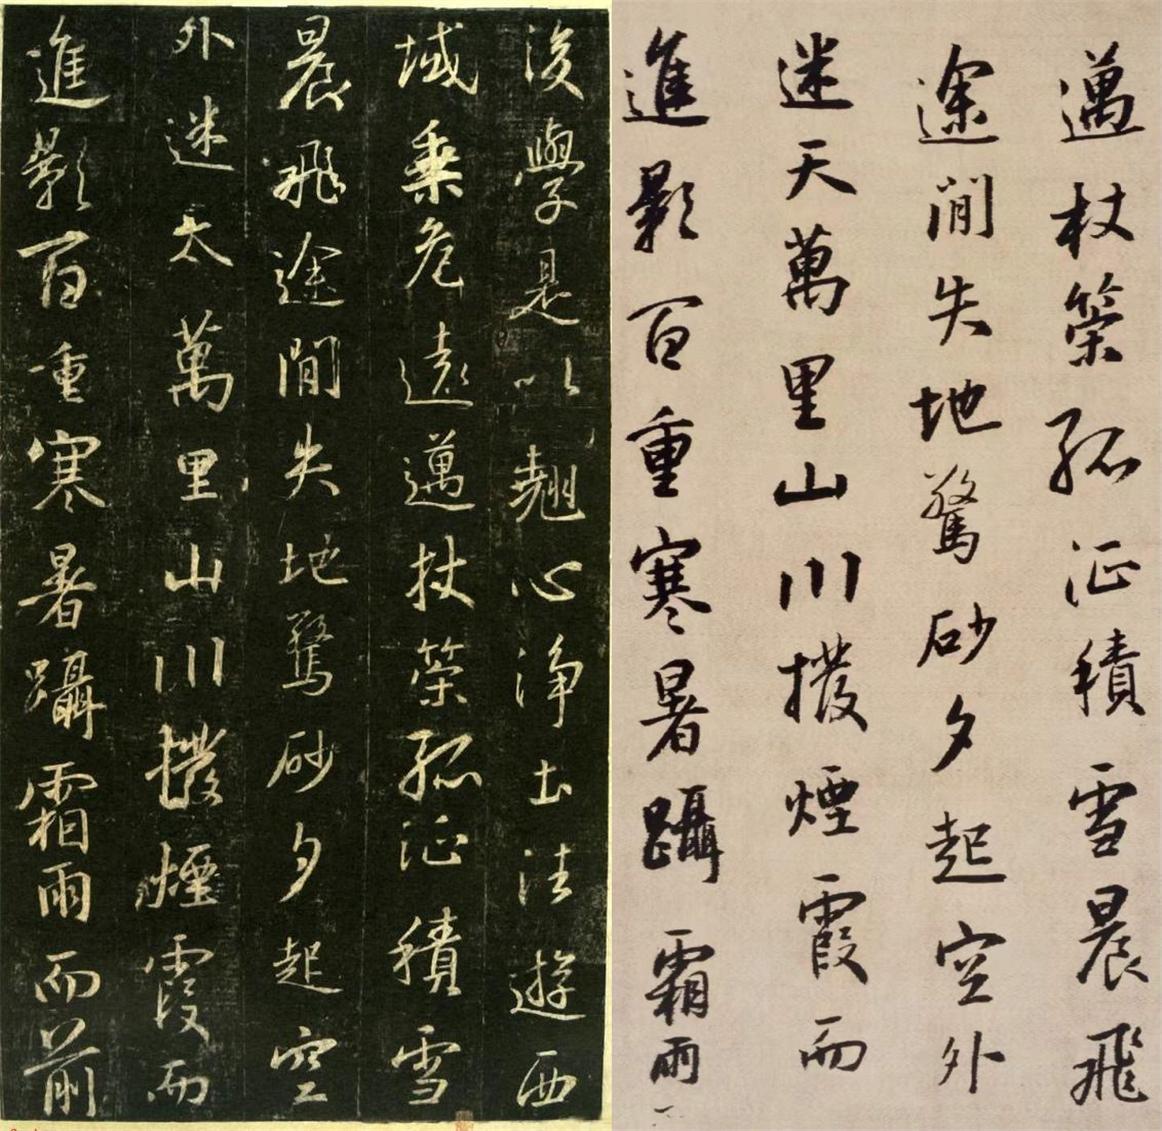 後學是以翹心淨土法遊西
域乘危遠邁杖策孤征積雪
晨飛途間失地驚砂夕起空
外迷天萬里山川撥煙霞而
進影百重寒暑躡霜雨而前
邁杖策孤征積雪晨飛
途間失地驚砂夕起空外
迷天萬里山川撥煙霞而
進影百重寒暑躡霜雨